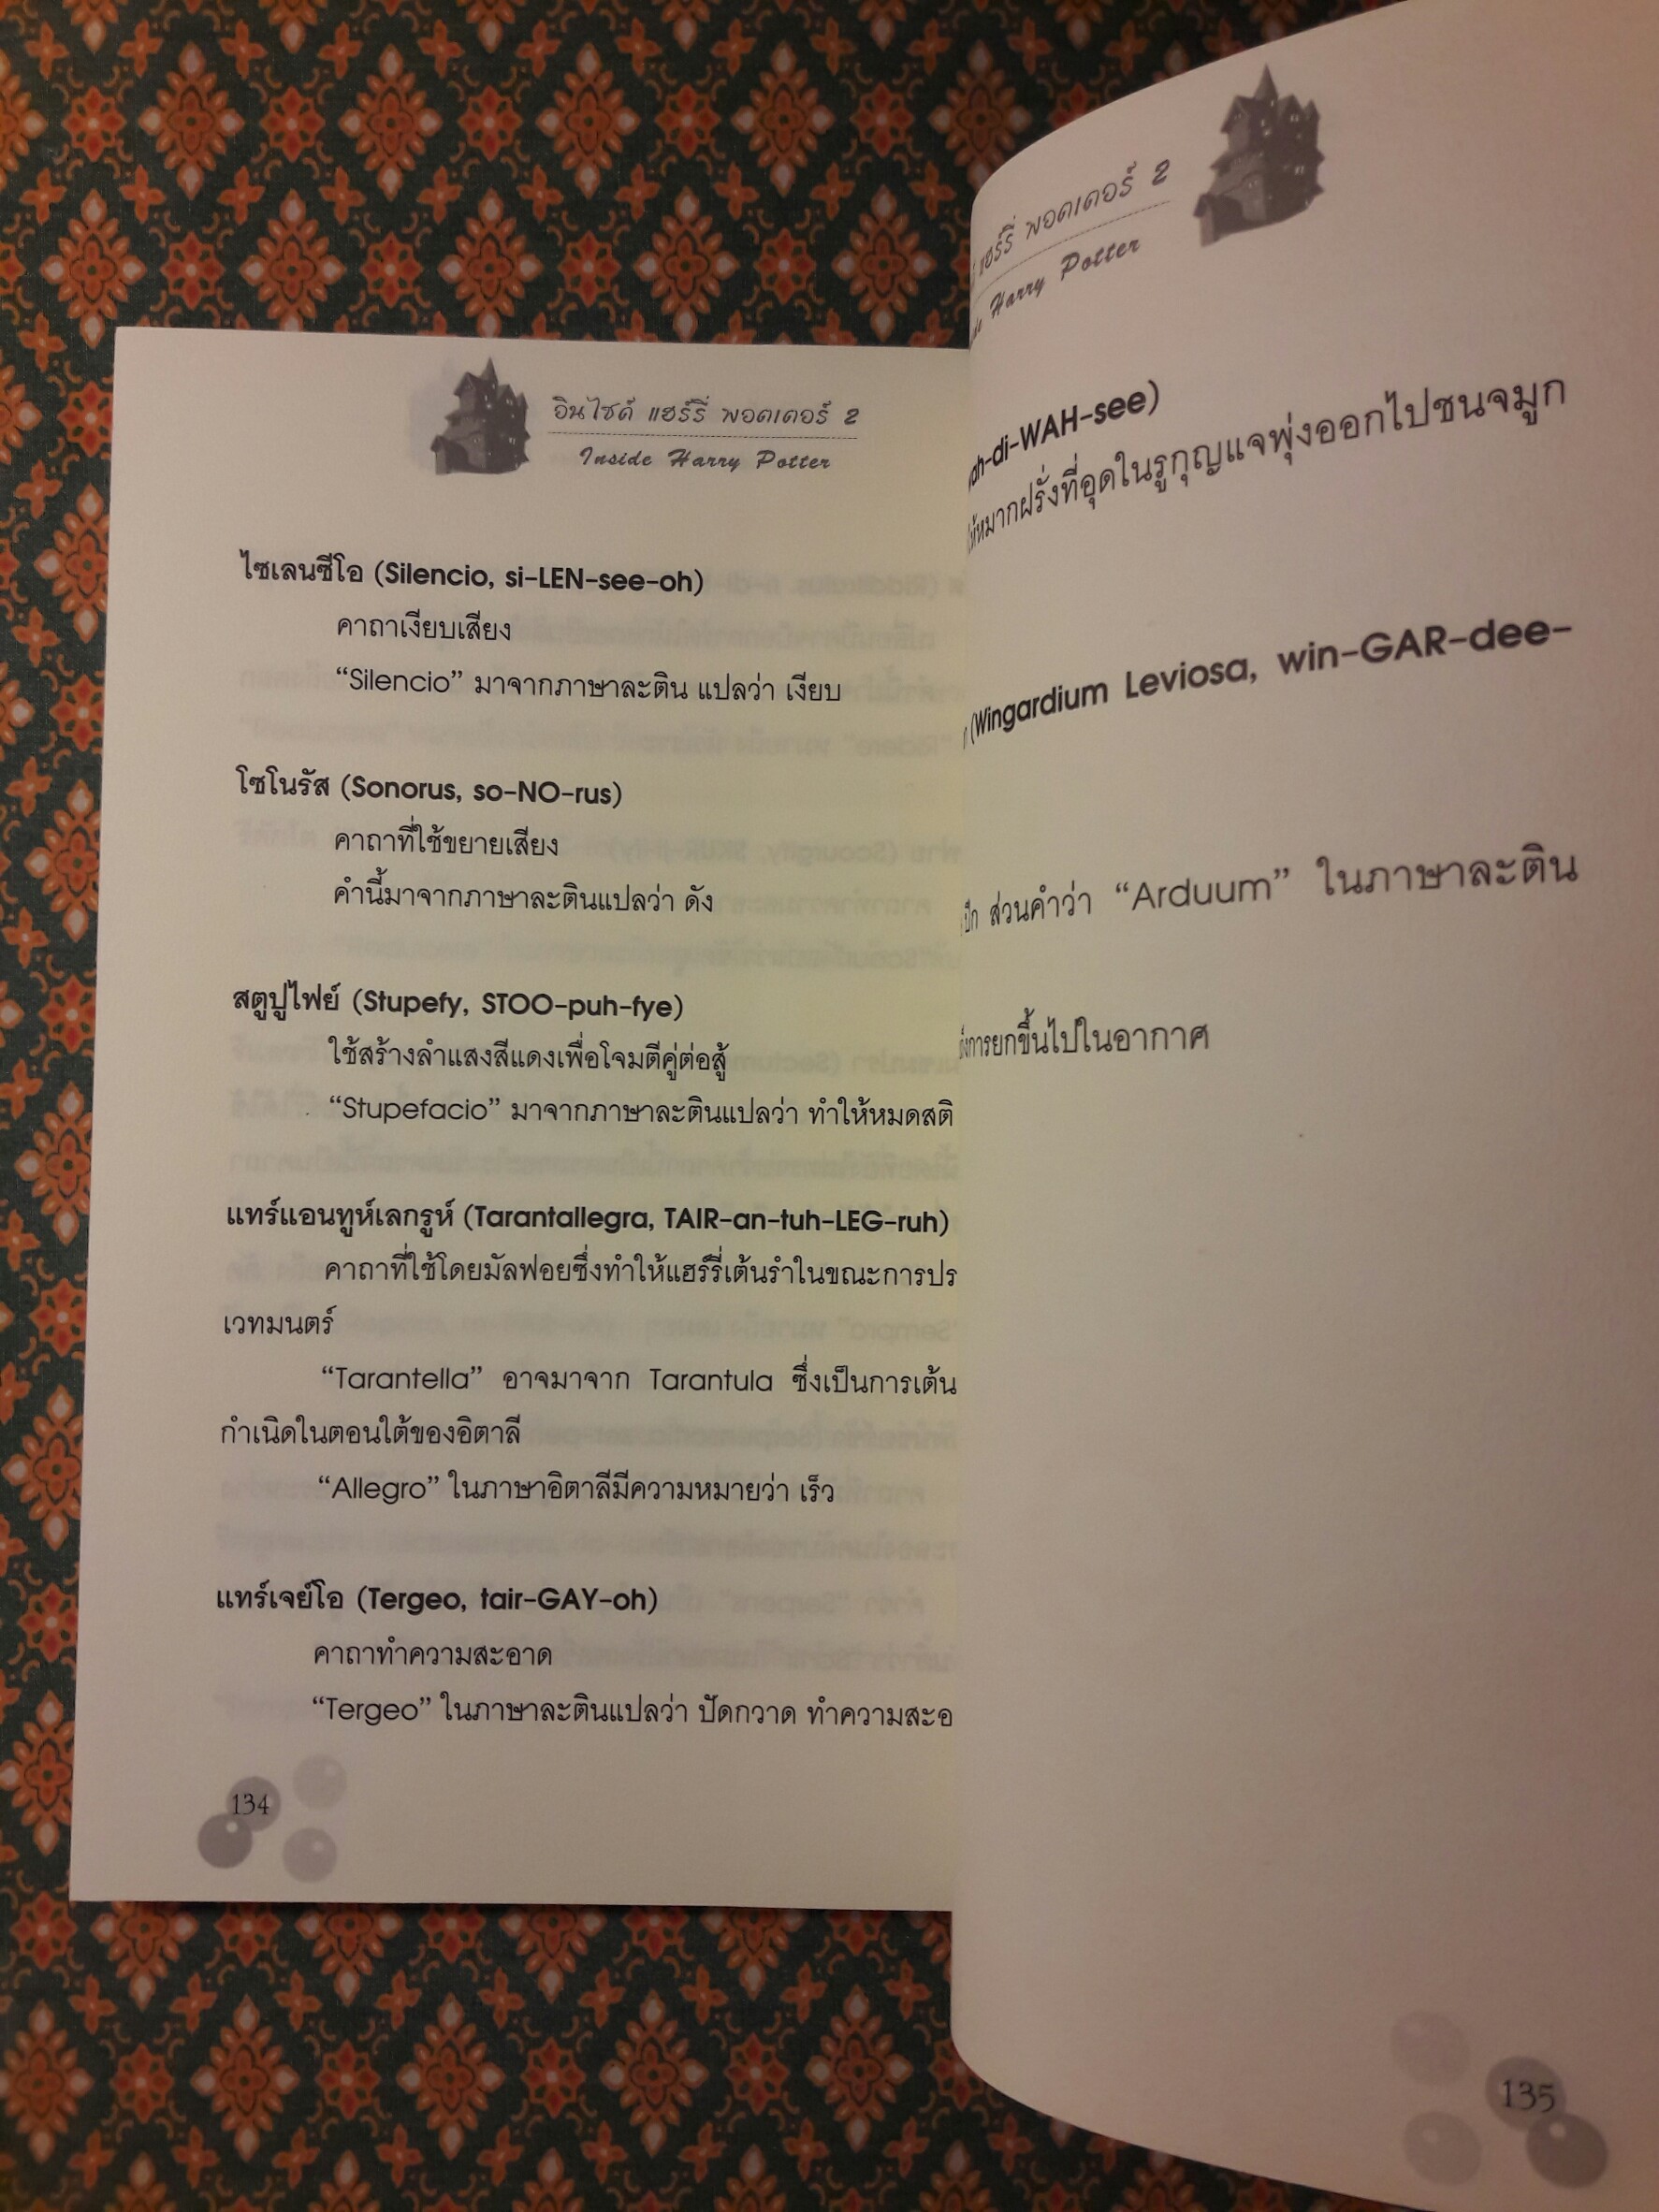 อินไซด์ แฮร์รี่ พอตเตอร์ 2
Inside Harry Potter
ไซเลนซีโอ (Silencio, si-LEN-see-oh)
คาถาเงียบเสียง
“Silencio” มาจากภาษาละติน แปลว่า เงียบ
โซโนรัส (Sonorus, so-NO-rus)
คาถาที่ใช้ขยายเสียง
คำนี้มาจากภาษาละตินแปลว่า ดัง
สตูปูไฟย์ (Stupefy, STOO-puh-fye)
ใช้สร้างลำแสงสีแดงเพื่อโจมตีคู่ต่อสู้
“Stupefacio” มาจากภาษาละตินแปลว่า ทำให้หมดสติ
แทร์แอนทูห์เลกรูห์ (Tarantallegra, TAIR-an-tuh-LEG-ruh)
คาถาที่ใช้โดยมัลฟอยซึ่งทำให้แฮร์รี่เต้นรำในขณะการปร
เวทมนตร์
“Tarantella” อาจมาจาก Tarantula ซึ่งเป็นการเต้น
กำเนิดในตอนใต้ของอิตาลี
“Allegro” ในภาษาอิตาลีมีความหมายว่า เร็ว
แทร์เจย์โอ (Tergeo, tair-GAY-oh)
คาถาทำความสะอาด
“Tergeo” ในภาษาละตินแปลว่า ปัดกวาด ทำความสะอ
134
แฮร์รี่ พอตเตอร์ 2
Harry Potter
-di-WAH-see)
ให้หมากฝรั่งที่อุดในรูกุญแจพุ่งออกไปชนจมูก
(Wingardium Leviosa, win-GAR-dee-
ปีก ส่วนคำว่า “Arduum” ในภาษาละติน
การยกขึ้นไปในอากาศ
135